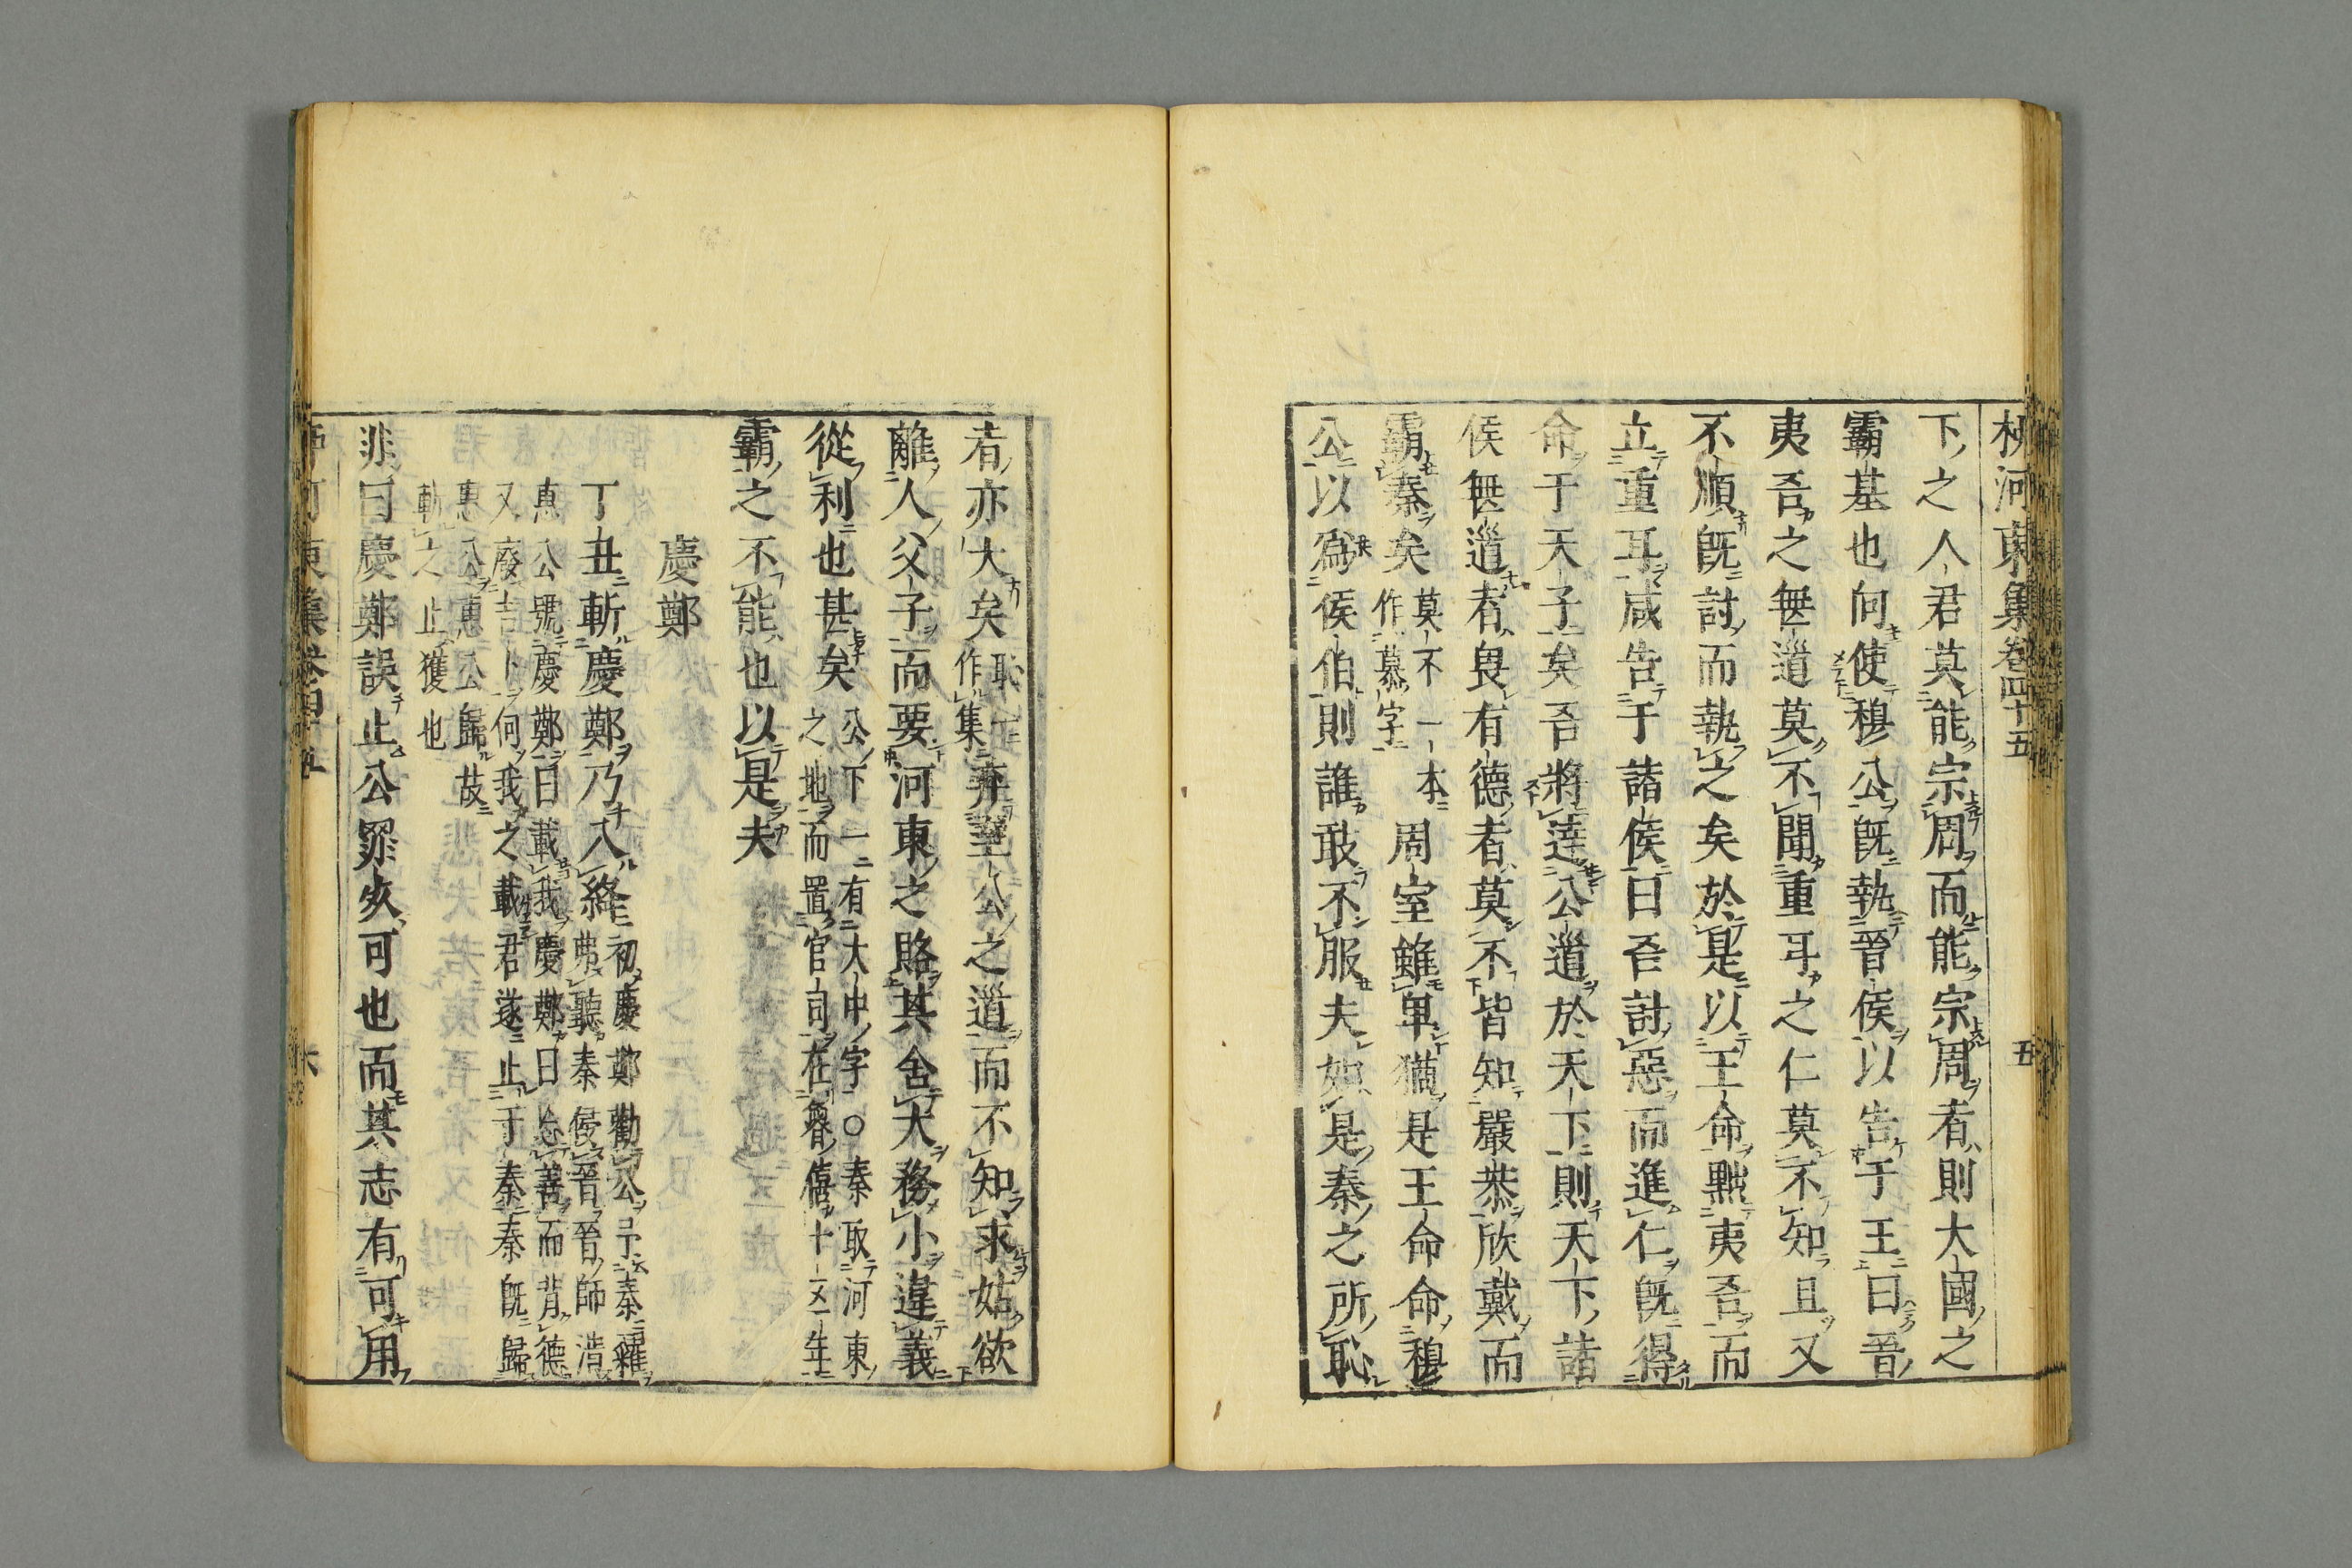 柳河東集卷四十五　五
下之人君莫能宗周而能宗周者則大國之
霸基也向使穆公既執晉侯以告于王曰晉
夷吾之無道莫不聞重耳之仁莫不知且又
不順既討而執之矣於是以王命黜夷吾而
立重耳咸告于諸侯曰吾討惡而進仁既得
命于天子矣吾將達公道於天下則天下諸
侯無道者畏有德者莫不皆知嚴恭欣戴而
霸秦矣莫不一本作慕字周室雖卑猶是王命命穆
公以為侯伯則誰敢不服夫如是秦之所恥
者亦大矣恥作集棄至公之道而不知求姑欲
離人父子而要河東之賂其舍大務小違義
從利也甚矣公下一有大中字〇秦取河東之地而置官司在魯僖十五年
霸之不能也以是夫
慶鄭
丁丑斬慶鄭乃入絳初慶鄭勸公予秦糴弗聽秦侵晉晉師潰
惠公號慶鄭曰載我慶鄭曰忘善而背德
又廢吉卜何我之載君遂止于秦秦既歸
惠公惠公歸故
斬之止獲也
非曰慶鄭誤止公罪死可也而其志有可用
東集卷四十五　六